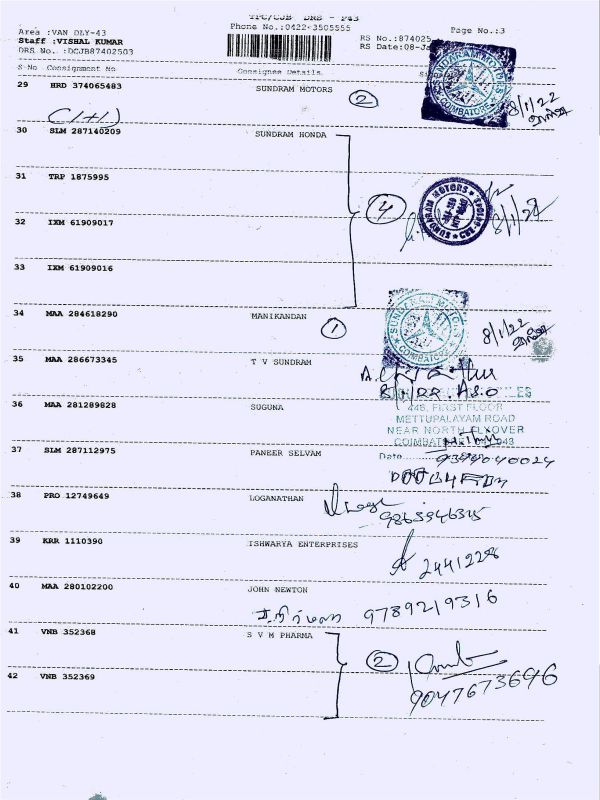 TPC/CJB DRS - P43
Area :VAN DLY-43
Phone No.:0422-3505555
Page No.:3
Staff :VISHAL KUMAR
RS No.:874025
DRS No.:DCJB87402503
RS Date:08-Ja
S No Consignment No Consignee Details
29 HRD 374065483 SUNDRAM MOTORS 2
SUNDARAM MOTORS COIMBATORE
8/1/22
(1+1)
30 SLM 287140209 SUNDRAM HONDA
31 TRP 1875995
4
SUNDARAM MOTORS
8/1/22
32 IXM 61909017
33 IXM 61909016
34 MAA 284618290 MANIKANDAN 1
SUNDARAM MOTORS COIMBATORE
8/1/22
35 MAA 286673345 T V SUNDRAM
36 MAA 281289828 SUGUNA
446, FIRST FLOOR
METTUPALAYAM ROAD
NEAR NORTH FLYOVER
37 SLM 287112975 PANEER SELVAM
Date
9394040024
38 PRO 12749649 LOGANATHAN
9863946345
39 KRR 1110390 ISHWARYA ENTERPRISES
24412228
40 MAA 280102200 JOHN NEWTON
9789219316
41 VNB 352368 S V M PHARMA
2
42 VNB 352369
9047673696